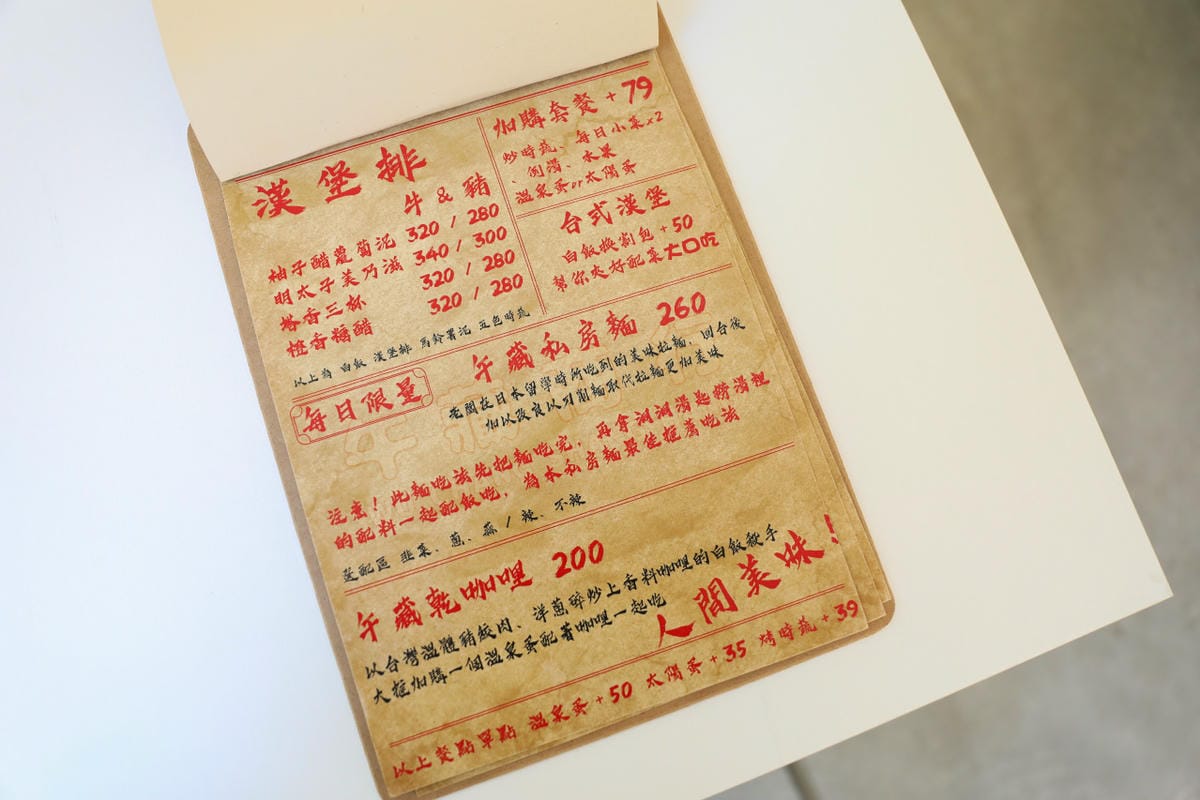 漢堡排
牛 & 豬
柚子醋蘿蔔泥 320 / 280
明太子美乃滋 340 / 300
塔香三杯 320 / 280
橙香糖醋 320 / 280
以上為 白飯 漢堡排 馬鈴薯泥 五色時蔬
加購套餐 + 79
炒時蔬、每日小菜x2
、例湯、水果
溫泉蛋or太陽蛋
台式漢堡
白飯換割包 + 50
幫你夾好配菜大口吃
每日限量
午藏私房麵 260
老闆在日本留學時所吃到的美味拉麵，回台後
加以改良以刀削麵取代拉麵更加美味
注意！此麵吃法先把麵吃完，再拿洞洞湯匙撈湯裡
的配料一起配飯吃，為本私房麵最佳推薦吃法
選配區 韭菜、蔥、蒜 / 辣、不辣
午藏乾咖哩 200
以台灣溫體豬絞肉、洋蔥碎炒上香料咖哩的白飯殺手
大推加購一個溫泉蛋配著咖哩一起吃
人間美味！
以上餐點單點 溫泉蛋 + 50 太陽蛋 + 35 烤時蔬 + 39